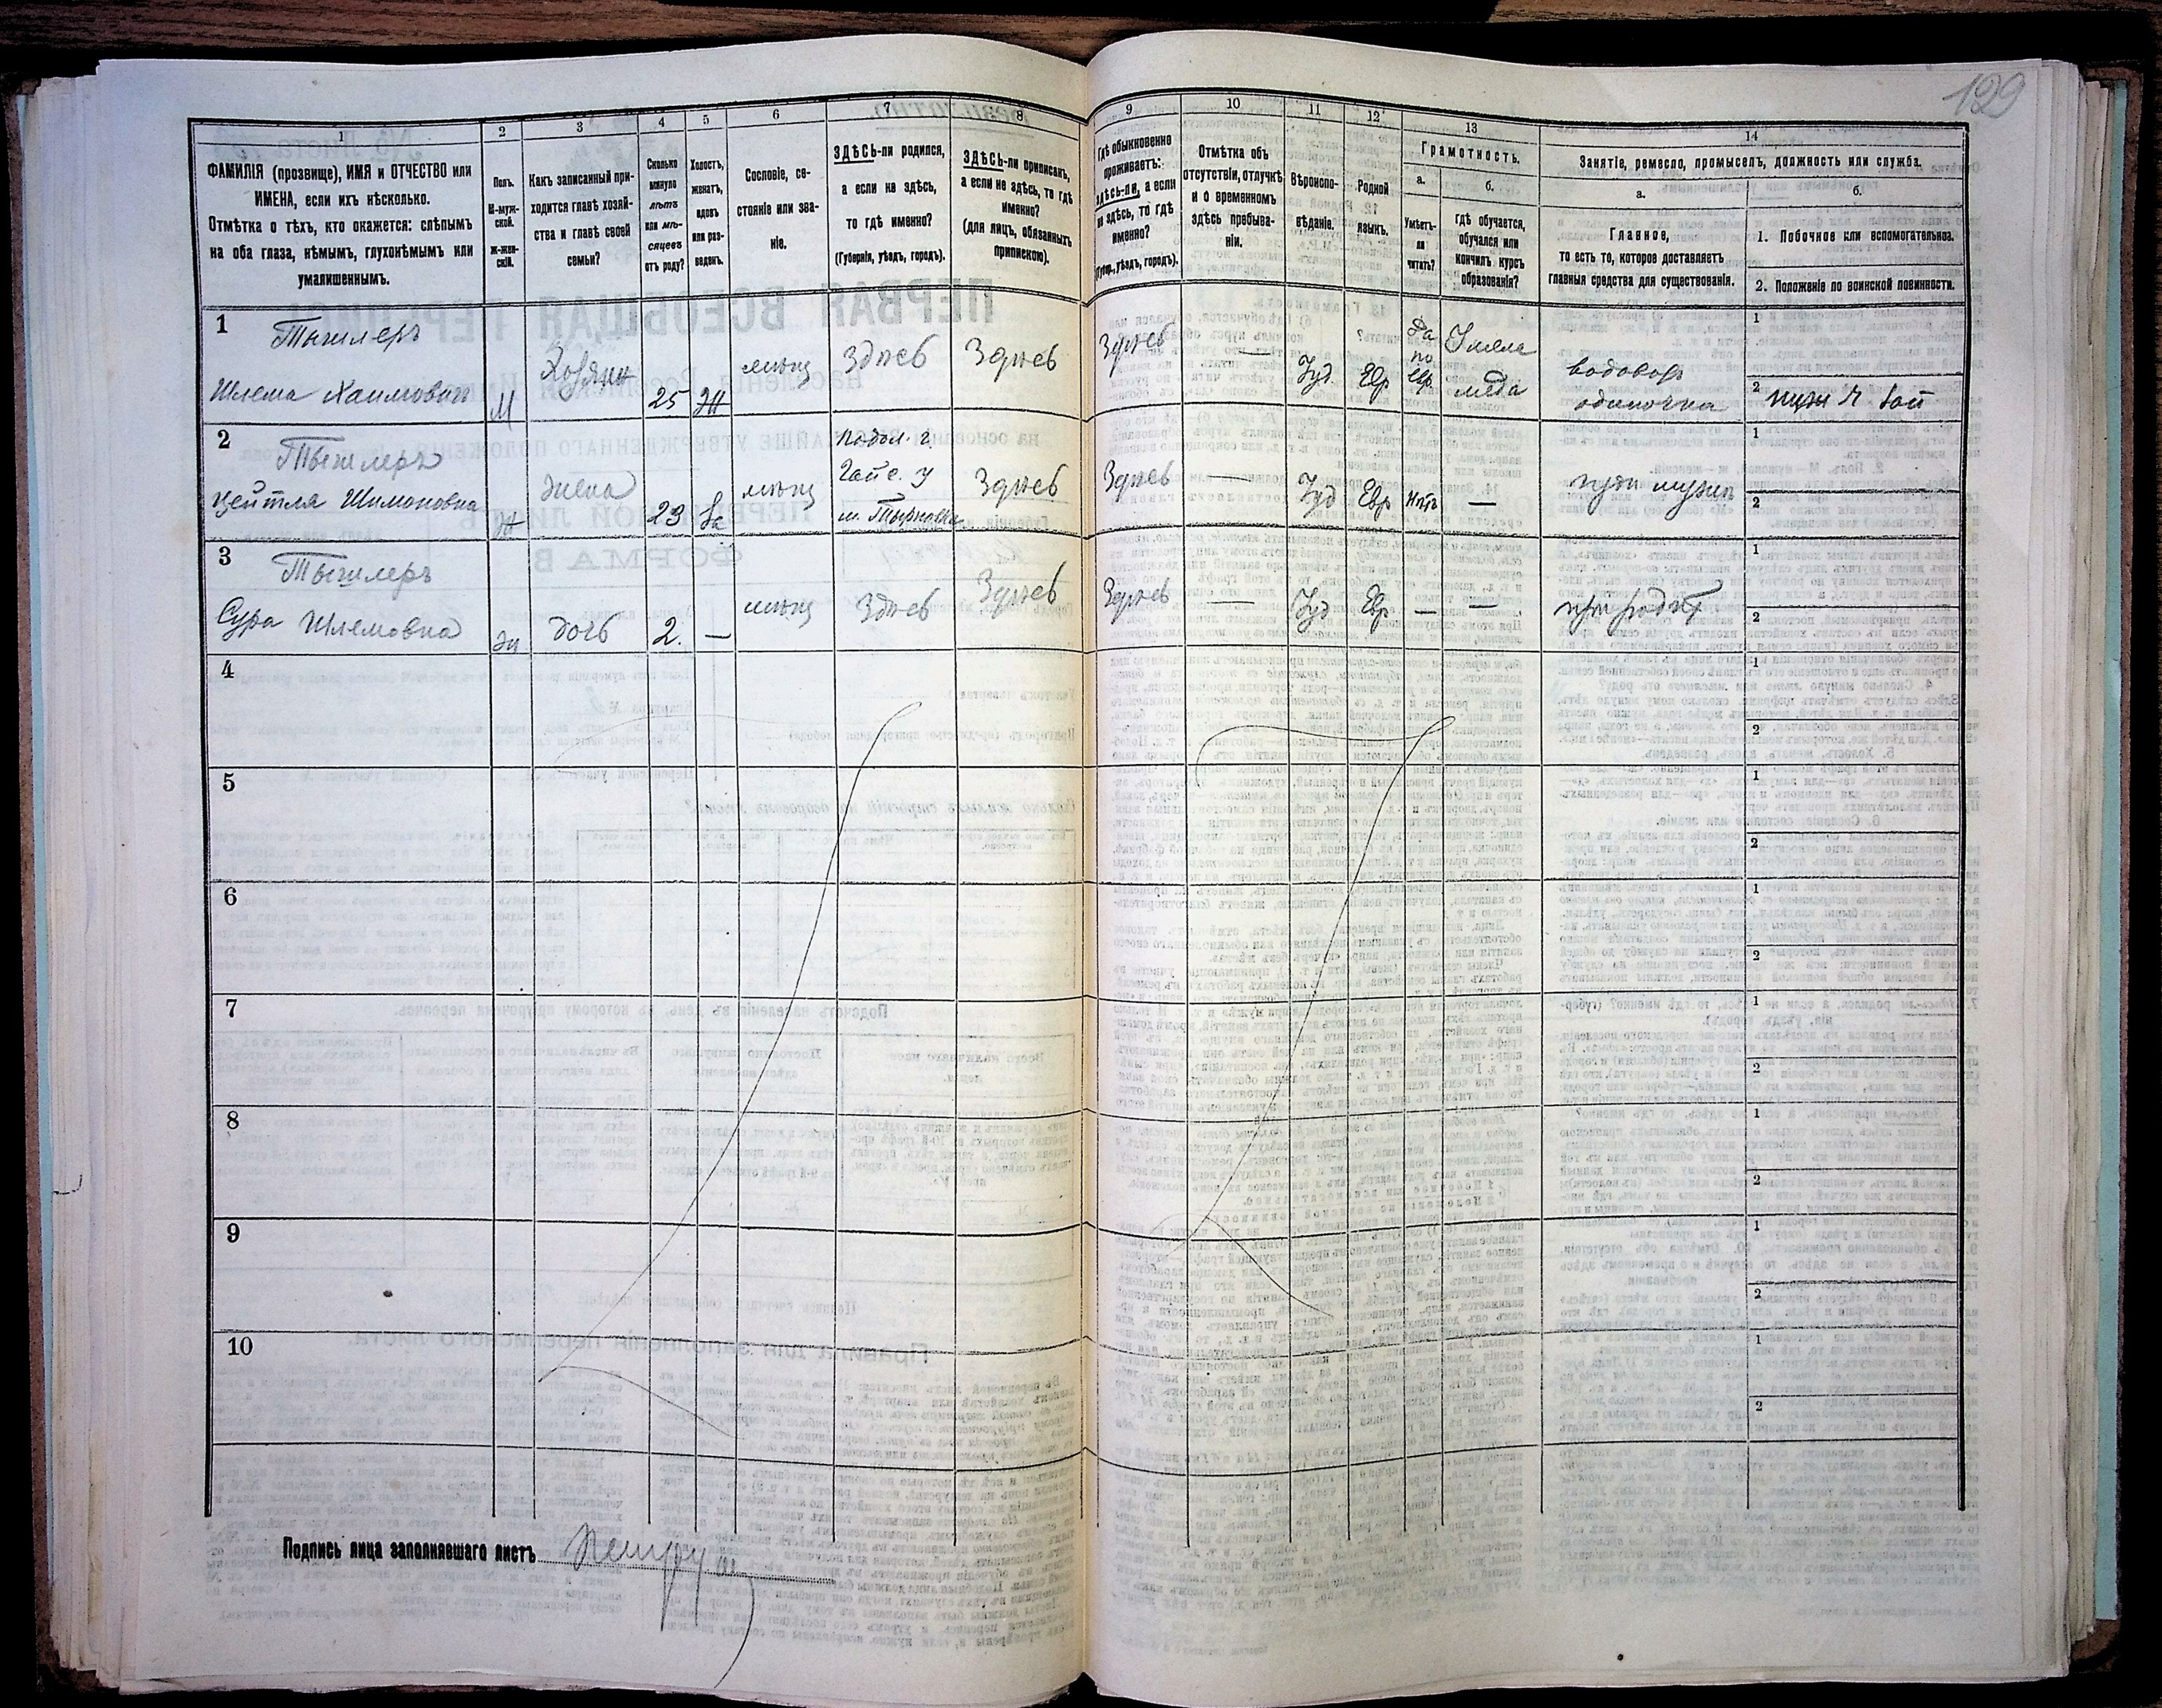 129
1
2
3
4
5
6
7
8
ФАМИЛІЯ (прозвище), ИМЯ и ОТЧЕСТВО или
ИМЕНА, если ихъ нѣсколько.
Отмѣтка о тѣхъ, кто окажется: слѣпымъ
на оба глаза, нѣмымъ, глухонѣмымъ или
умалишеннымъ.
Полъ.
М-муж-
ской.
Ж-жен-
скій.
Какъ записанный при-
ходится главѣ хозяй-
ства и главѣ своей
семьи?
Сколько
минуло
лѣтъ
или мѣ-
сяцевъ
отъ роду?
Холостъ,
женатъ,
вдовъ
или раз-
веденъ.
Сословіе, со-
стояніе или зва-
ніе.
ЗДѢСЬ-ли родился,
а если не здѣсь,
то гдѣ именно?
(Губернія, уѣздъ, городъ).
ЗДѢСЬ-ли приписанъ,
а если не здѣсь, то гдѣ
именно?
(для лицъ, обязанныхъ
припискою).
9
10
11
12
13
14
Гдѣ обыкновенно
проживаетъ:
здѣсь-ли, а если
не здѣсь, то гдѣ
именно?
(Губер., уѣздъ, городъ).
Отмѣтка объ
отсутствіи, отлучкѣ
и о временномъ
здѣсь пребыва-
ніи.
Вѣроиспо-
вѣданіе.
Родной
языкъ.
Грамотность.
а.
б.
Умѣетъ-
ли
читать?
гдѣ обучается,
обучался или
кончилъ курсъ
образованія?
Занятіе, ремесло, промыселъ, должность или служба.
а.
б.
Главное,
то есть то, которое доставляетъ
главныя средства для существованія.
1. Побочное или вспомогательное.
2. Положеніе по воинской повинности.
1
Тышлеръ
Шлема Хаимовичъ
М
Хозяинъ
25
Ж
мѣщ
Здѣсь
Здѣсь
Здѣсь
—
Іуд.
Евр
Да
по
Евр.
водовозъ
одиночка
1
2
2
Тышлеръ
Цейтля Шимоновна
Ж
жена
23
За
мѣщ
Подол. г.
Гайс. у
м. Терновка
Здѣсь
Здѣсь
—
Іуд
Евр
Нѣтъ
—
при мужѣ
1
2
3
Тышлеръ
Сура Шлемовна
Ж
дочь
2.
—
мѣщ
Здѣсь
Здѣсь
Здѣсь
—
Іуд
Евр
—
—
при родит
1
2
4
1
2
5
1
2
6
1
2
7
1
2
8
1
2
9
1
2
10
1
2
Подпись лица заполнявшаго листъ